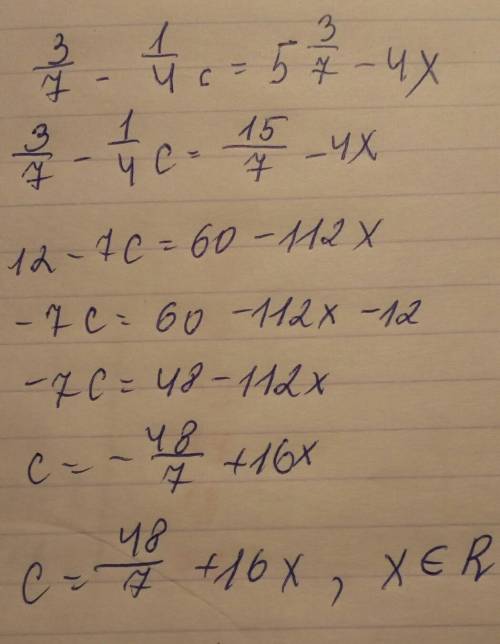 3/7 - 1/4 c = 5 3/7 - 4x
3/7 - 1/4 c = 15/7 - 4x
12 - 7c = 60 - 112x
-7c = 60 - 112x - 12
-7c = 48 - 112x
c = - 48/7 + 16x
c = 48/7 + 16x , x ∈ R